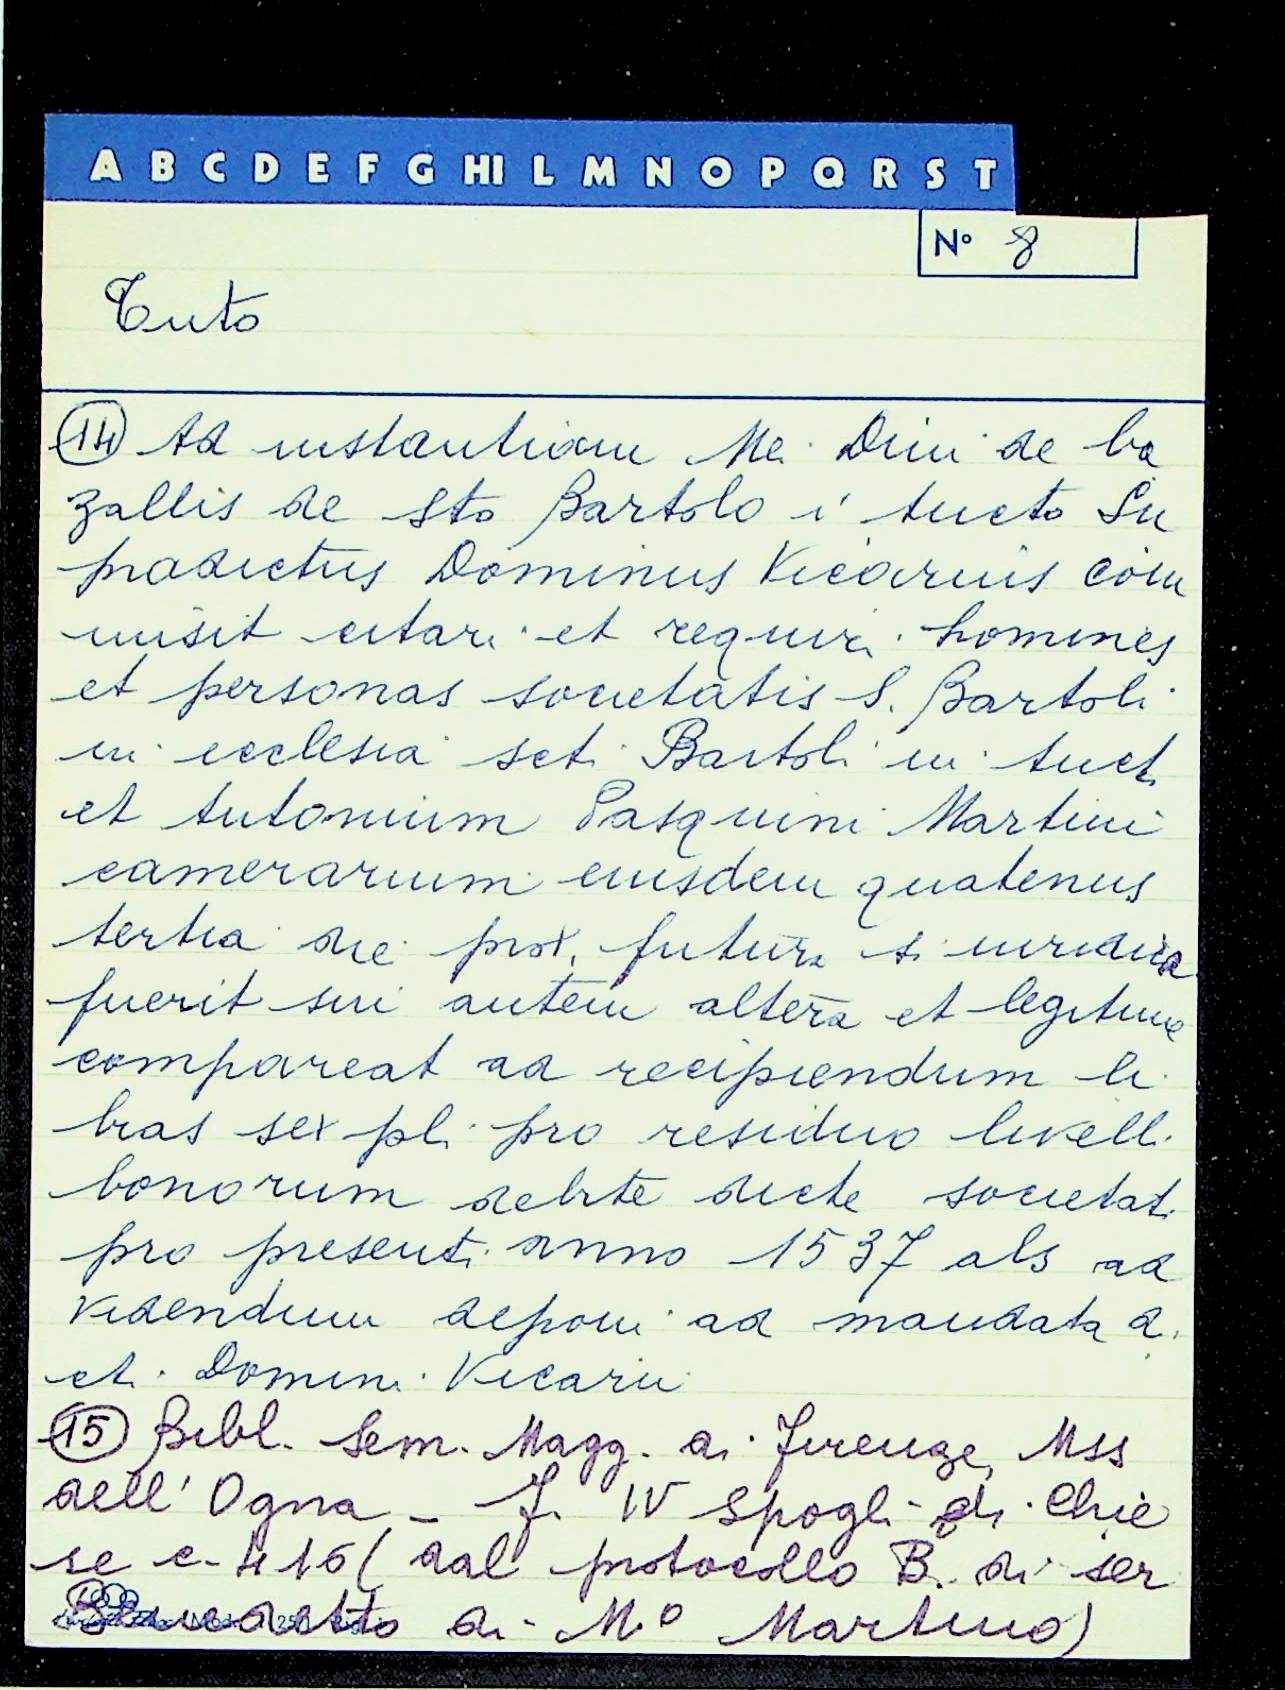 A B C D E F G HI L M N O P Q R S T
N° 8
Tuto
(14) Ad instantiam Me. Dini de ba
zallis de Sto Bartolo i tucto Su
pradictus Dominus Vicarius com
misit citari et requiri homines
et personas societatis S. Bartoli
in ecclesia scti Bartoli in tuct.
et Antonium Pasquini Martini
camerarium eiusdem quatenus
tertia die prox. futura si iuridica
fuerit sin autem altera et legitime
compareat ad recipiendum li
bras sex pl. pro residuo livelli
bonorum debite dicte societati
pro presenti anno 1537 als ad
videndum deponi ad mandata d.
cti. Domini Vicarii
(15) Bibl. Sem. Magg. di Firenze, Mss
dell' Ogna - F. IV Spogli di Chie
se c. 416 (dal protocollo B. di ser
Benedetto di M.° Martino)